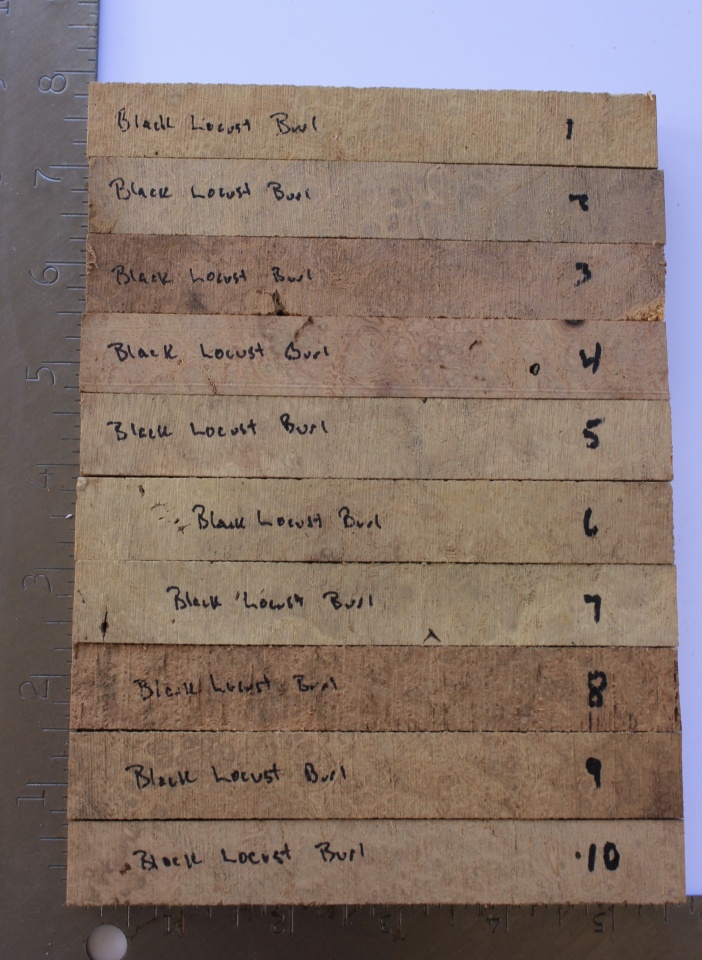 8
Black Locust Burl 1
7
Black Locust Burl 2
6
Black Locust Burl 3
5
Black Locust Burl 4
Black Locust Burl 5
4
Black Locust Burl 6
3
Black Locust Burl 7
2
Black Locust Burl 8
1
Black Locust Burl 9
Black Locust Burl 10
1 2 3 4 5